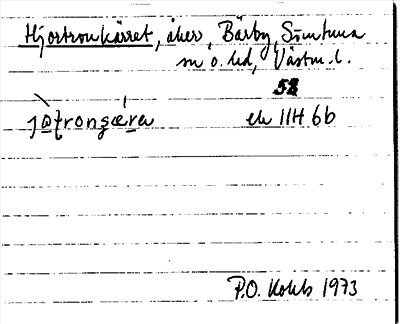 Hjortronkärret, åker, Bärby, Simtuna
sn o. hd, Västm. l.
52
ek 11H 6b
P.O. Kolsb 1973